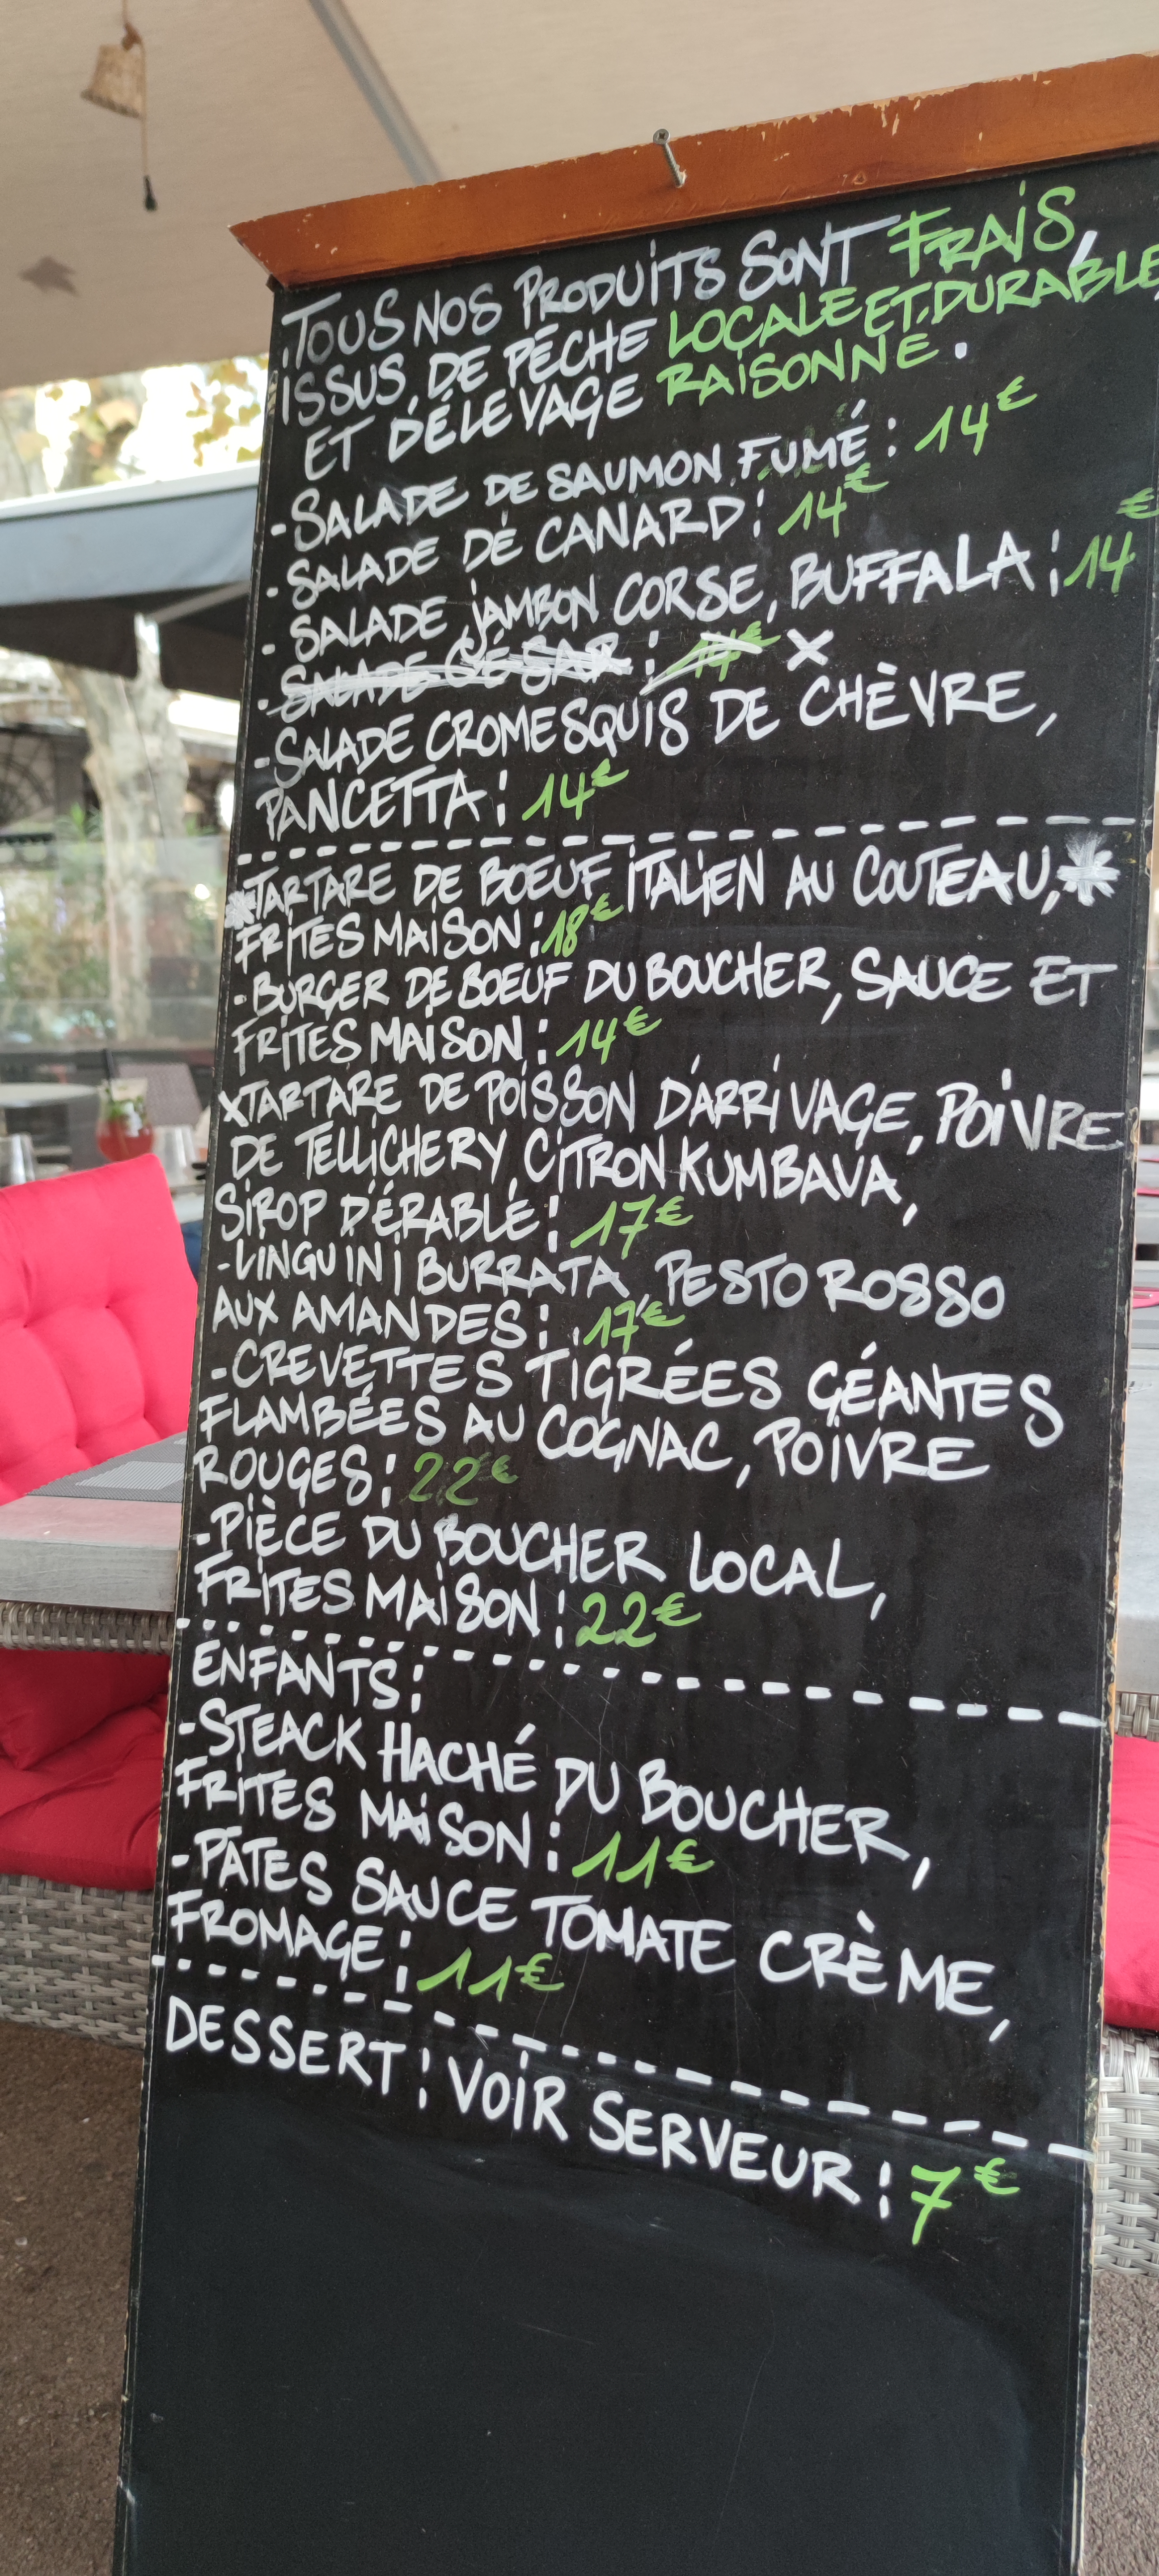 TOUS NOS PRODUITS SONT FRAIS,
ISSUS DE PÊCHE LOCALE ET DURABLE,
ET D'ÉLEVAGE RAISONNÉ.
- SALADE DE SAUMON FUMÉ : 14€
- SALADE DE CANARD : 14€
- SALADE JAMBON CORSE, BUFFALA : 14€
- SALADE CÉSAR : 14€ X
- SALADE CROMESQUIS DE CHÈVRE,
PANCETTA : 14€
*TARTARE DE BOEUF ITALIEN AU COUTEAU,*
FRITES MAISON : 18€
- BURGER DE BOEUF DU BOUCHER, SAUCE ET
FRITES MAISON : 14€
XTARTARE DE POISSON D'ARRIVAGE, POIVRE
DE TELLICHERY, CITRON KUMBAVA,
SIROP D'ÉRABLE : 17€
- LINGUINI BURRATA, PESTO ROSSO
AUX AMANDES : 17€
- CREVETTES TIGRÉES GÉANTES
FLAMBÉES AU COGNAC, POIVRE
ROUGES : 22€
- PIÈCE DU BOUCHER LOCAL,
FRITES MAISON : 22€
ENFANTS :
- STEACK HACHÉ DU BOUCHER,
FRITES MAISON : 11€
- PÂTES SAUCE TOMATE CRÈME,
FROMAGE : 11€
DESSERT : VOIR SERVEUR : 7€